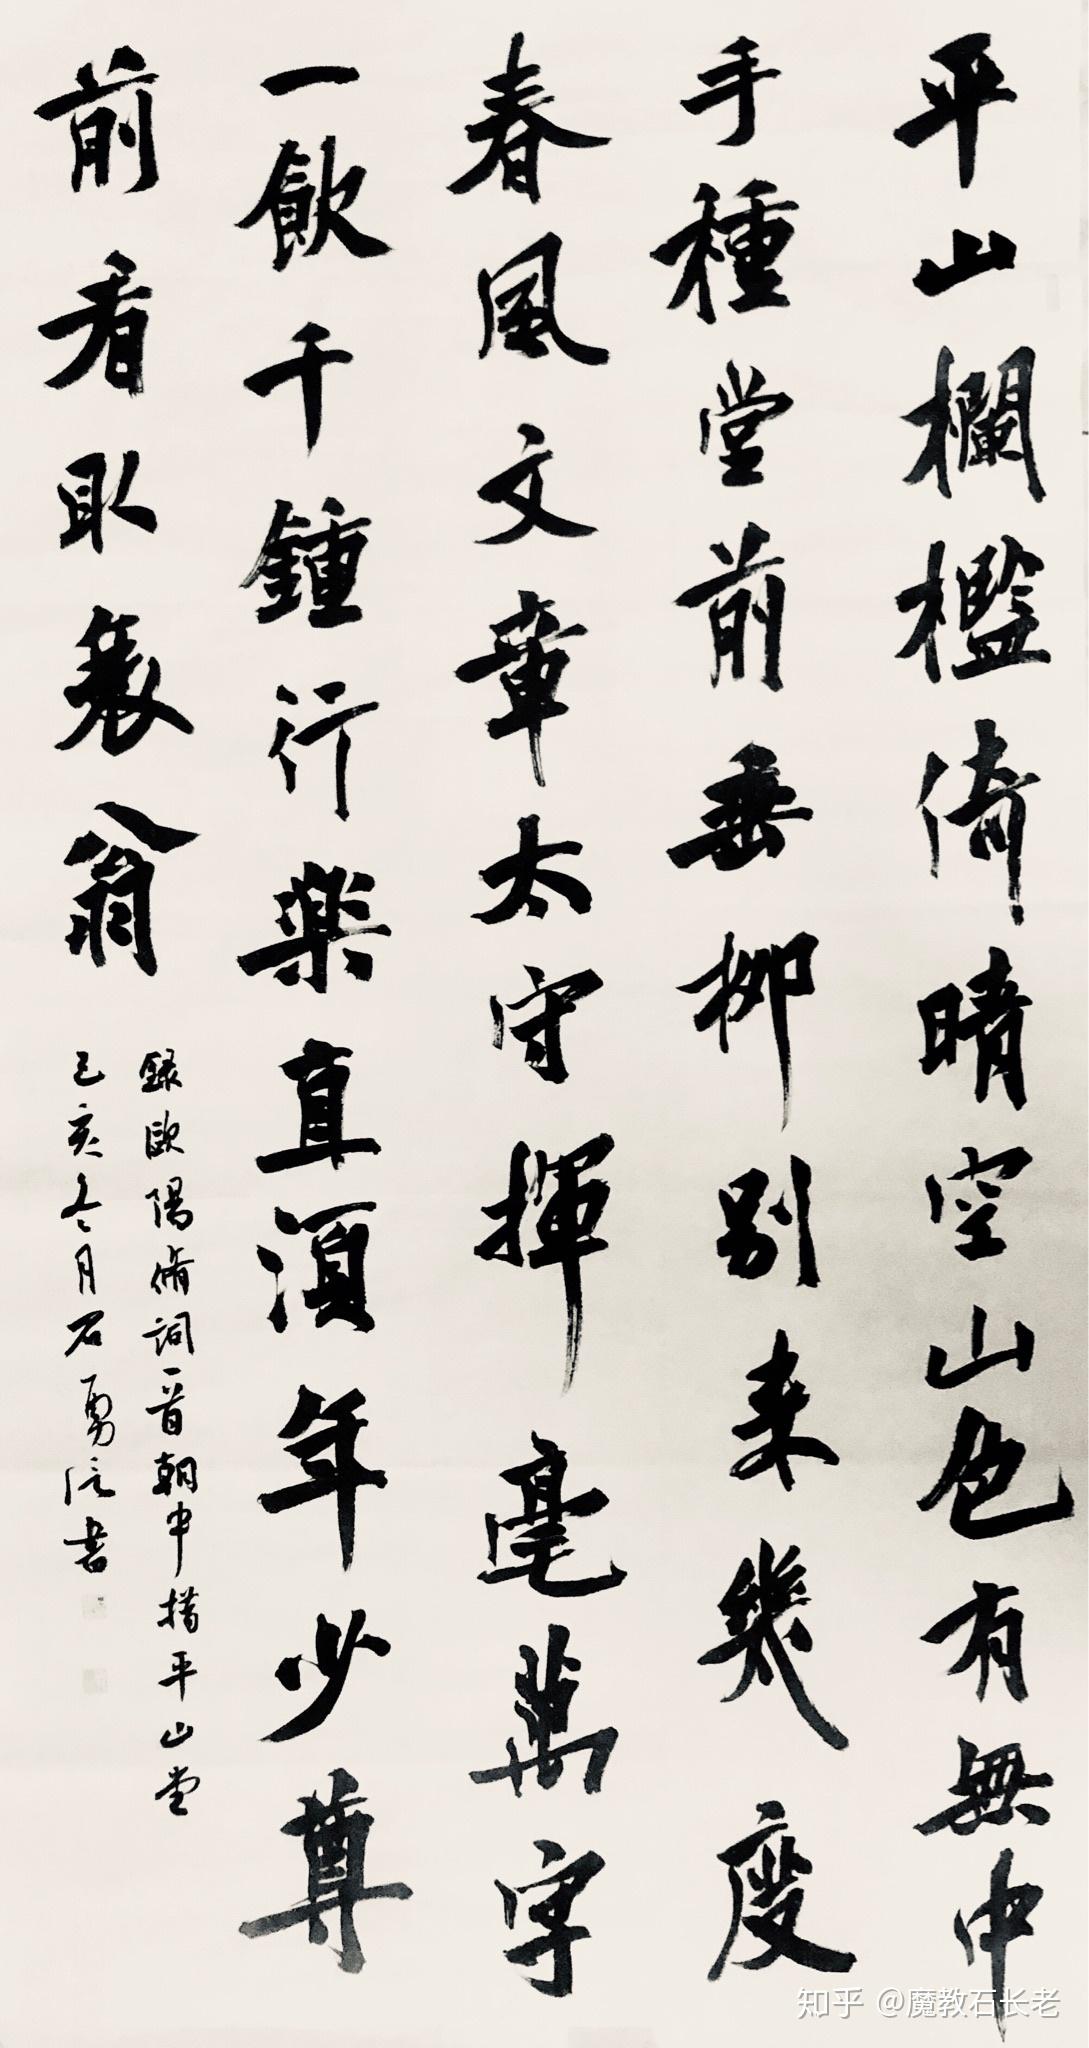 平山欄檻倚晴空山色有無中
手種堂前垂柳別来幾度
春風文章太守揮毫萬字
一飲千鍾行楽直須年少尊
前看取衰翁
録歐陽脩詞一首朝中措平山堂
己亥冬月石勇信書
知乎 @魔教石长老